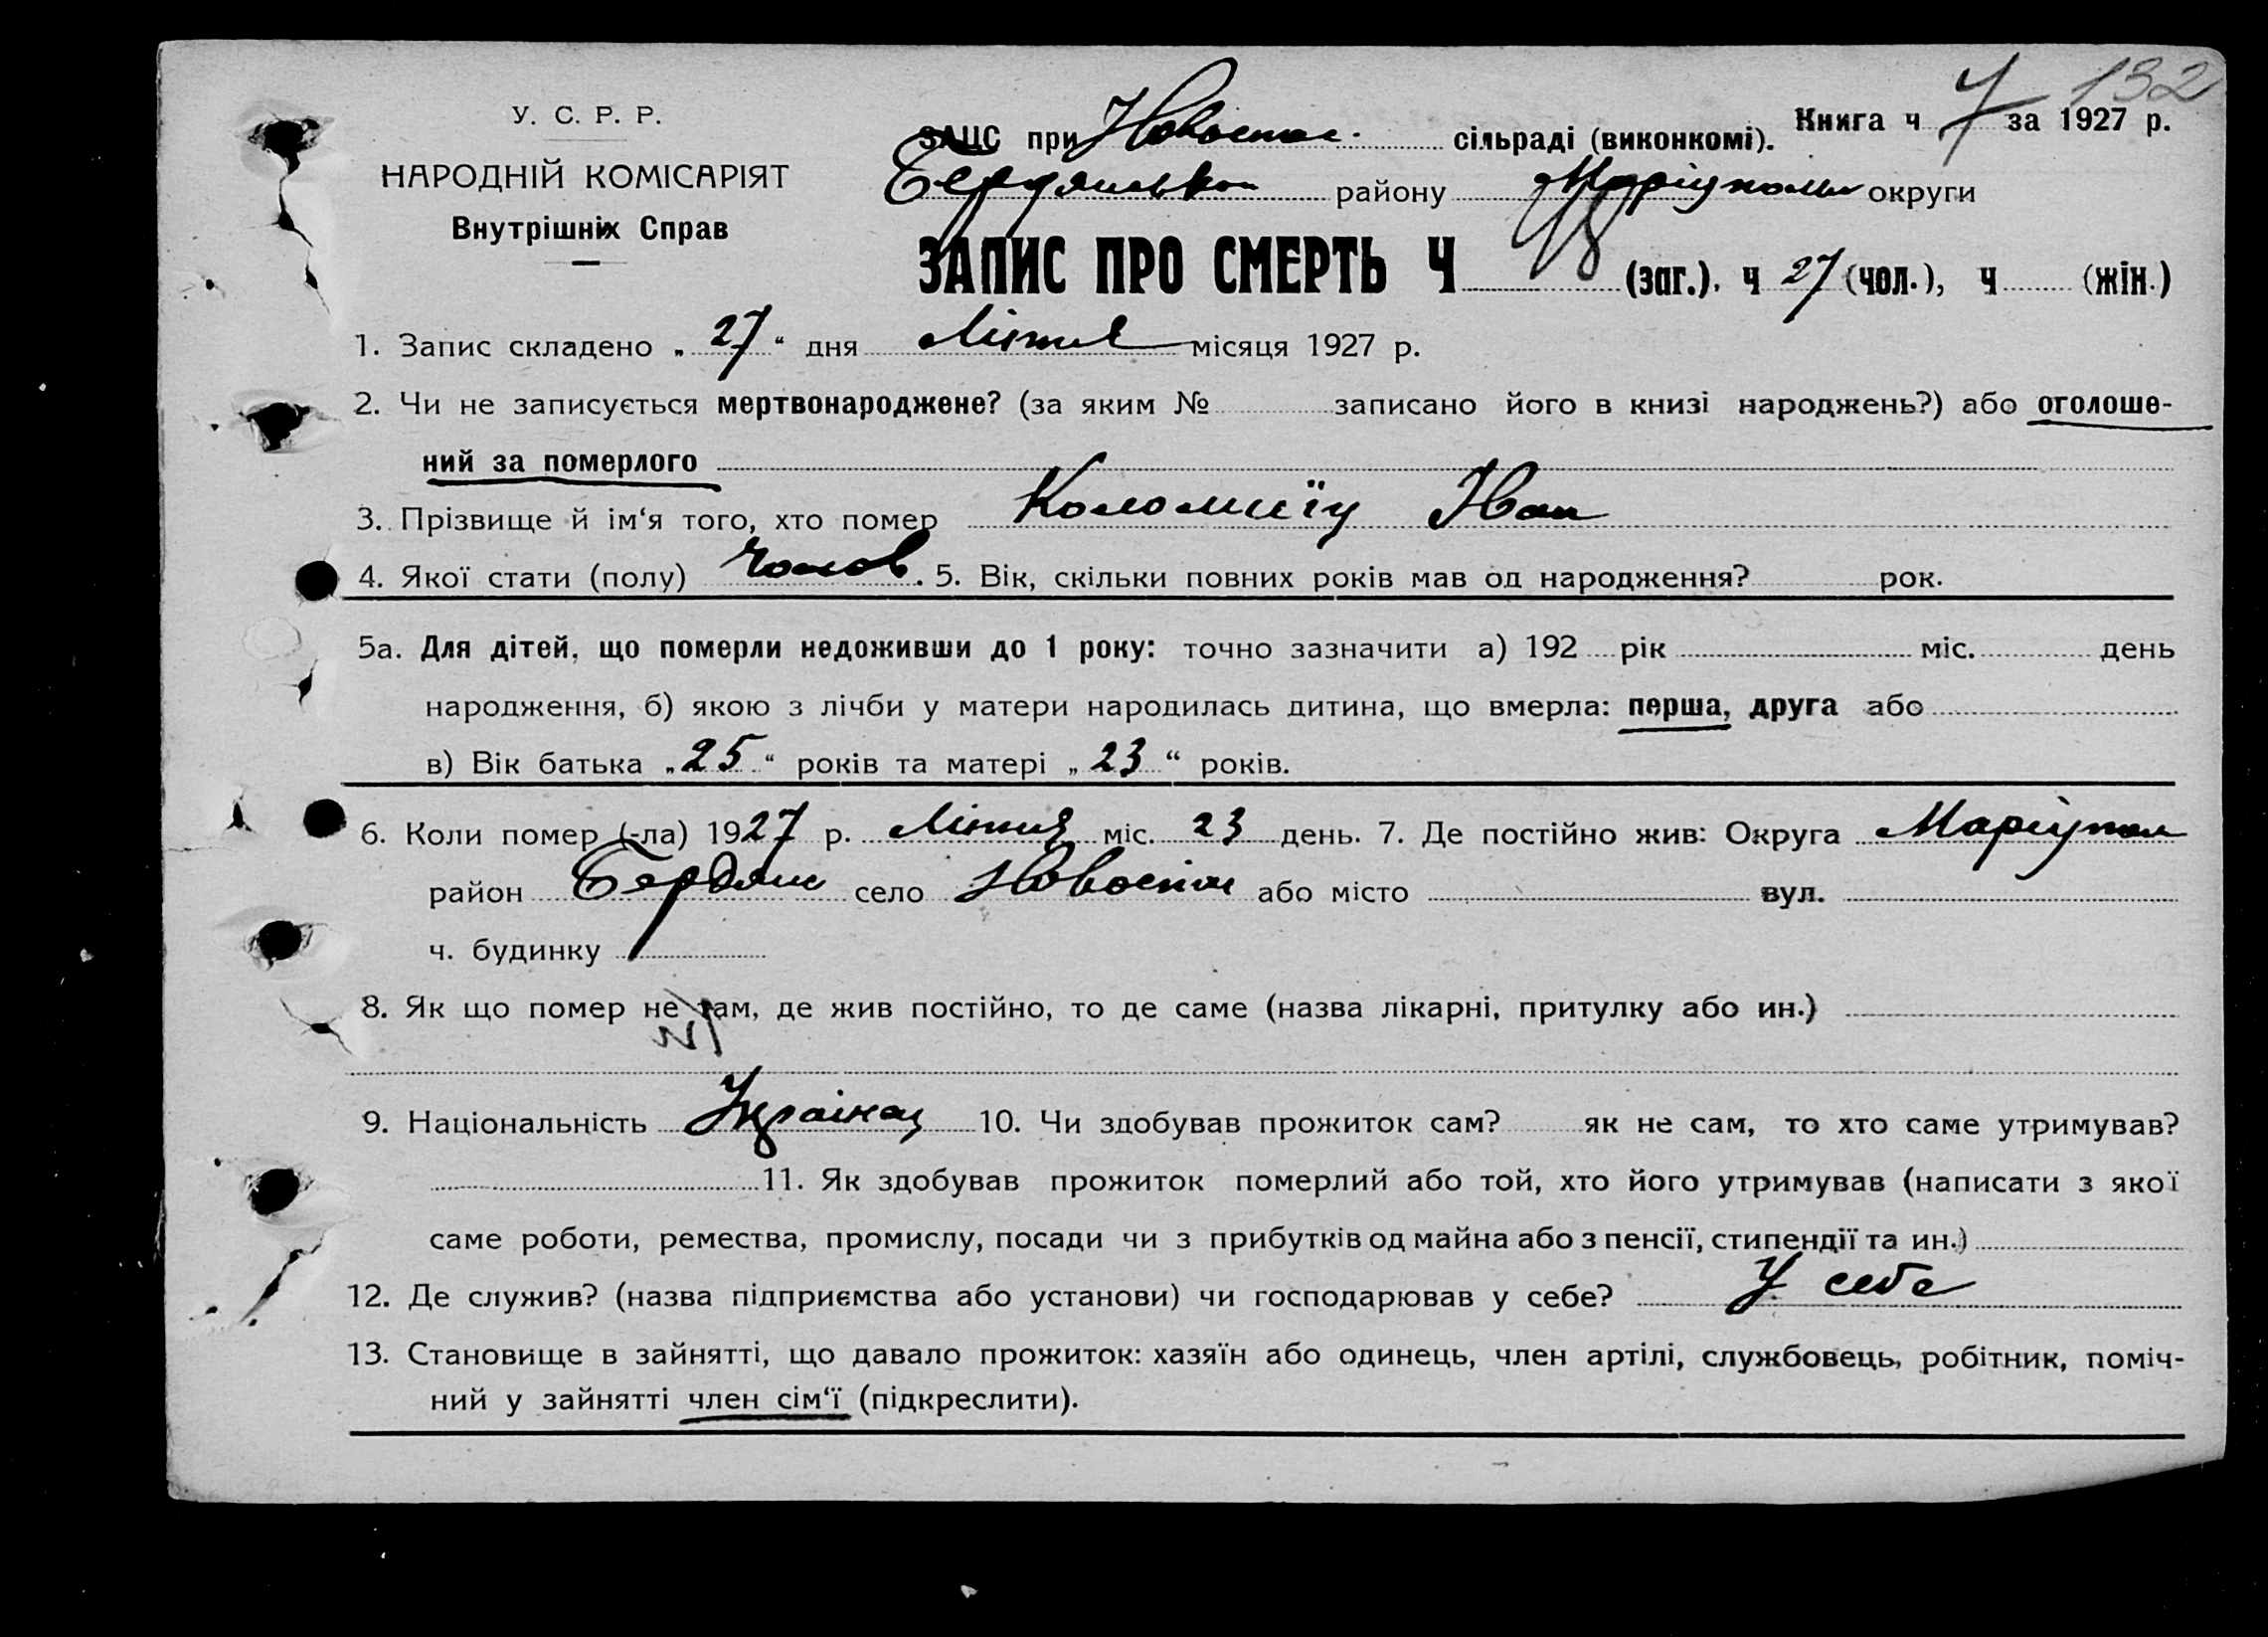 132
У. С. Р. Р.
НАРОДНІЙ КОМІСАРІЯТ
Внутрішніх Справ
ЗАЦС при Новоспас. сільраді (виконкомі). Книга ч за 1927 р.
Бердянсько району Маріупольс округи
ЗАПИС ПРО СМЕРТЬ Ч (заг.), ч 27 (чол.), ч (жін.)
1. Запис складено „27“ дня Липня місяця 1927 р.
2. Чи не записується мертвонароджене? (за яким № записано його в книзі народжень?) або оголоше-
ний за померлого
3. Прізвище й ім‘я того, хто помер Коломиїц Іван
4. Якої стати (полу) чолов. 5. Вік, скільки повних років мав од народження? рок.
5а. Для дітей, що померли недоживши до 1 року: точно зазначити а) 192 рік міс. день
народження, б) якою з лічби у матери народилась дитина, що вмерла: перша, друга або
в) Вік батька „25“ років та матері „23“ років.
6. Коли помер (-ла) 1927 р. Липня міс. 23 день. 7. Де постійно жив: Округа Маріупол
район Бердянс село Новоспас або місто вул.
ч. будинку
8. Як що помер не там, де жив постійно, то де саме (назва лікарні, притулку або ин.)
9. Національність Українец 10. Чи здобував прожиток сам? як не сам, то хто саме утримував?
11. Як здобував прожиток померлий або той, хто його утримував (написати з якої
саме роботи, ремества, промислу, посади чи з прибутків од майна або з пенсії, стипендії та ин.)
12. Де служив? (назва підприємства або установи) чи господарював у себе? У себе
13. Становище в зайнятті, що давало прожиток: хазяїн або одинець, член артілі, службовець, робітник, поміч-
ний у зайнятті член сім‘ї (підкреслити).